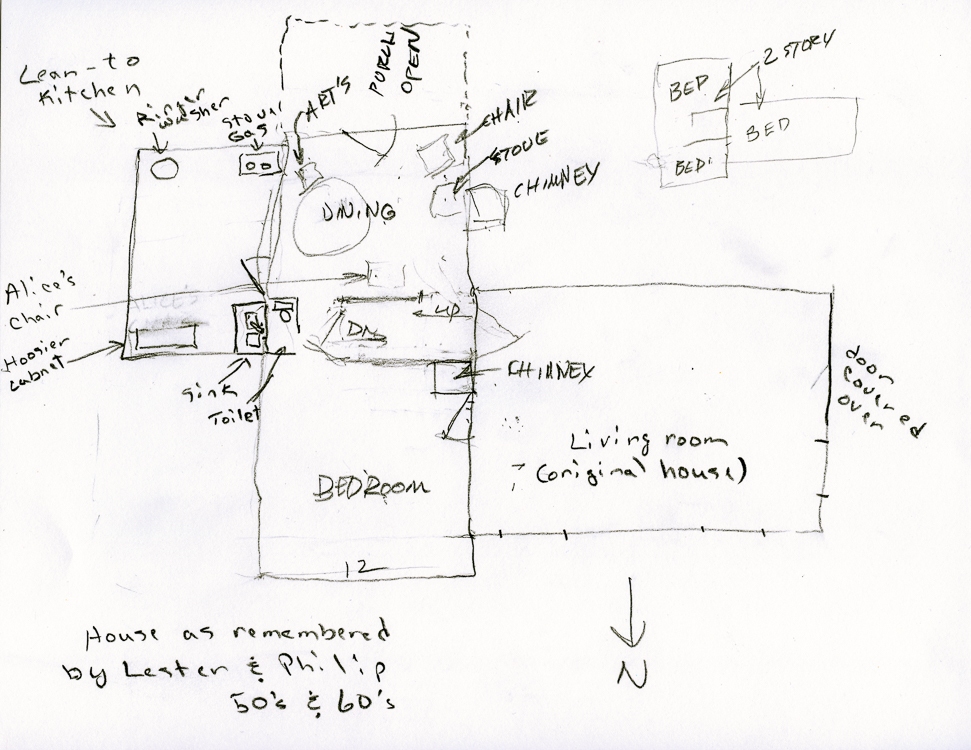 Lean-to
Kitchen
Ringer
washer
Stove
Gas
ART'S
PORCH
OPEN
CHAIR
STOVE
CHIMNEY
2 STORY
BED
BED
BED
DINING
Alice's
chair
Hoosier
cabnet
UP
DN
CHIMNEY
Sink
Toilet
door
covered
over
Living room
? (original house)
BEDROOM
12
House as remembered
by Lester & Philip
50's & 60's
N